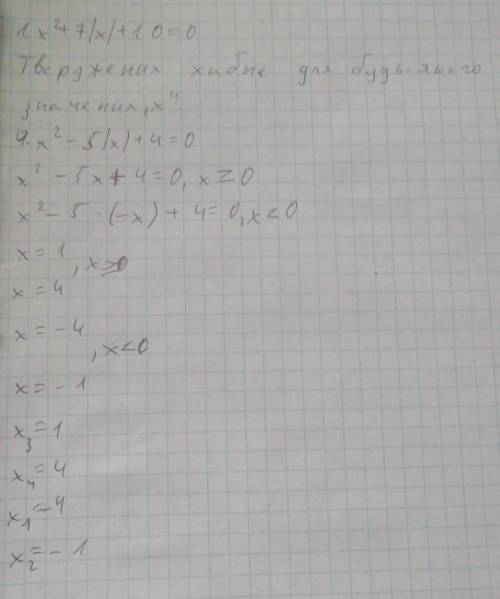 1. x²+7|x|+10=0
Твердження хибне для будь-якого
значення „x"
4. x² - 5|x|+4=0
x² - 5x+4=0, x ≥ 0
x² - 5 · (-x) + 4=0, x < 0
x = 1
, x ≥ 0
x = 4
x = -4
, x < 0
x = -1
x₃ = 1
x₄ = 4
x₁ = -4
x₂ = -1